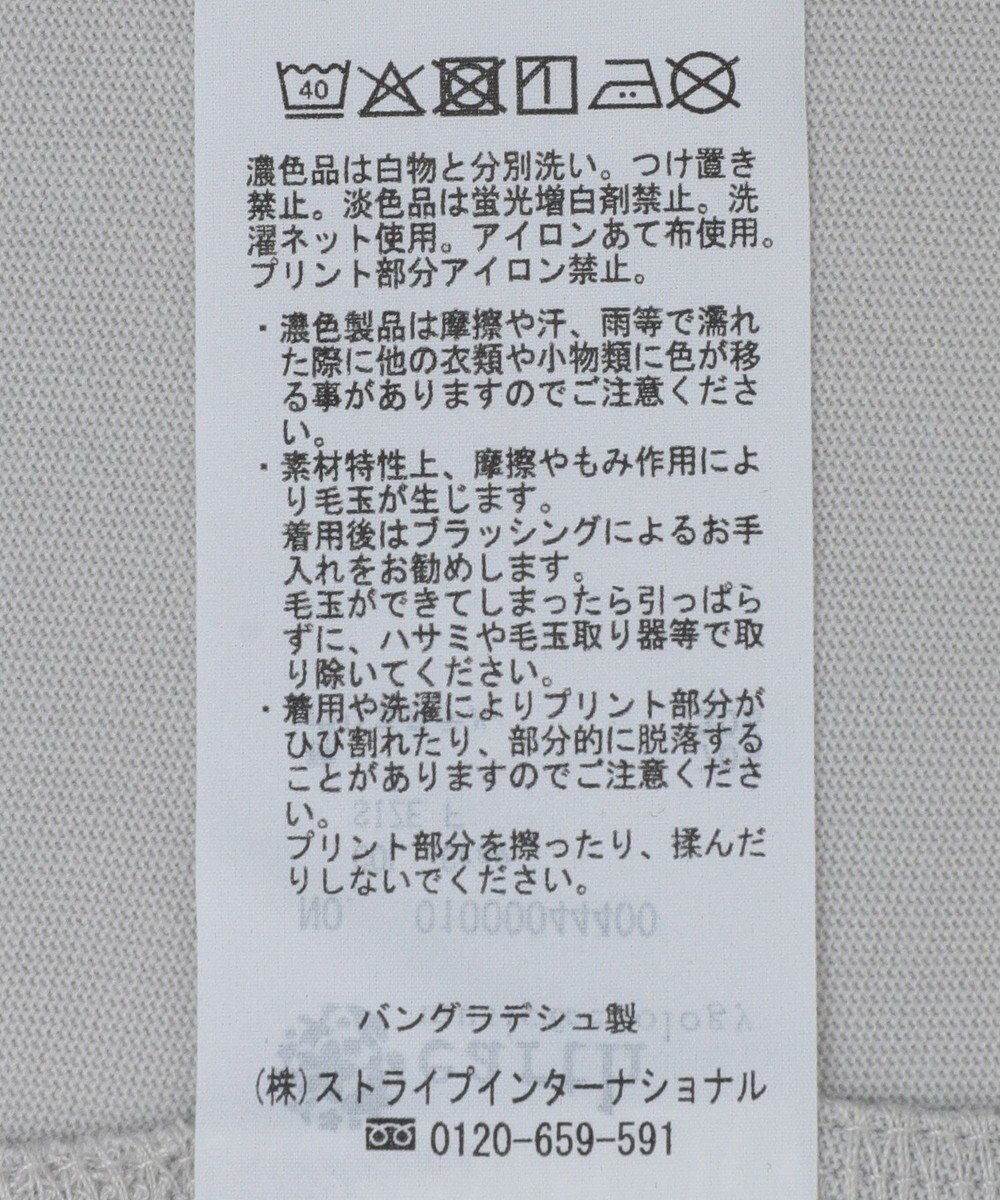 40
濃色品は白物と分別洗い。つけ置き
禁止。淡色品は蛍光増白剤禁止。洗
濯ネット使用。アイロンあて布使用。
プリント部分アイロン禁止。
・濃色製品は摩擦や汗、雨等で濡れ
た際に他の衣類や小物類に色が移
る事がありますのでご注意くださ
い。
・素材特性上、摩擦やもみ作用によ
り毛玉が生じます。
着用後はブラッシングによるお手
入れをお勧めします。
毛玉ができてしまったら引っぱら
ずに、ハサミや毛玉取り器等で取
り除いてください。
・着用や洗濯によりプリント部分が
ひび割れたり、部分的に脱落する
ことがありますのでご注意くださ
い。
プリント部分を擦ったり、揉んだ
りしないでください。
SIZE F
NO. 01000044400
バングラデシュ製
earth
(株)ストライプインターナショナル
0120-659-591